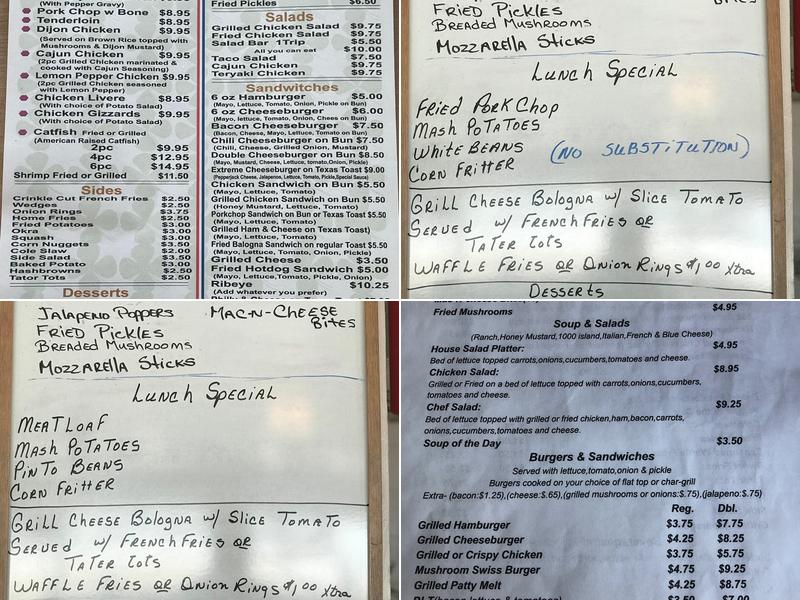 (With Pepper Gravy)
Pork Chop w Bone $8.95
Tenderloin $8.95
Dijon Chicken $9.95
(Served on Brown Rice topped with
Mushrooms & Dijon Mustard)
Cajun Chicken $9.95
(2pc Grilled Chicken marinated &
cooked with Cajun Seasoning)
Lemon Pepper Chicken $9.95
(2pc Grilled Chicken seasoned
with Lemon Pepper)
Chicken Livere $8.95
(With choice of Potato Salad)
Chicken Gizzards $9.95
(With choice of Potato Salad)
Catfish Fried or Grilled
(American Raised Catfish)
2pc $9.95
4pc $12.95
6pc $14.95
Shrimp Fried or Grilled $11.50
Sides
Crinkle Cut French Fries $2.50
Wedges $2.50
Onion Rings $3.75
Home Fries $2.50
Fried Potatoes $3.00
Okra $3.00
Squash $3.00
Corn Nuggets $3.50
Cole Slaw $2.50
Side Salad $3.50
Baked Potato $3.00
Hashbrowns $2.50
Tator Tots $2.50
Desserts
Fried Pickles $6.50
Salads
Grilled Chicken Salad $9.75
Fried Chicken Salad $9.75
Salad Bar 1Trip $5.50
All you can eat $10.00
Taco Salad $7.50
Cajun Chicken $9.75
Teryaki Chicken $9.75
Sandwitches
6 oz Hamburger $5.00
(Mayo, Lettuce, Tomato, Onion, Pickle on Bun)
6 oz Cheeseburger $6.00
(Mayo, Lettuce, Tomato, Onion, Pickle on Bun)
Bacon Cheeseburger $7.50
(Bacon, Cheese, Mayo, Lettuce, Tomato on Bun)
Chili Cheeseburger on Bun $7.50
(Chili, Cheese, Grilled Onion, Mustard)
Double Cheeseburger on Bun $8.50
(Mayo, Mustard, Cheese, Lettuce, tomato,Onion, Pickle)
Extreme Cheeseburger on Texas Toast $9.00
(Pepperjack Cheese, Jalapenos, Lettuce, Tomato, Pickle,Special Sauce)
Chicken Sandwich on Bun $5.50
(Mayo, Lettuce, Tomato)
Grilled Chicken Sandwich on Bun $5.50
(Honey Mustard, Lettuce, Tomato)
Porkchop Sandwich on Bun or Texas Toast $5.50
(Mayo, Lettuce, Tomato)
Grilled Ham & Cheese on Texas Toast)
(Mayo, Lettuce, Tomato)
Fried Balogna Sandwich on regular Toast $5.50
(Mayo, Lettuce, Tomato, Onion, Pickle)
Grilled Cheese $3.50
Fried Hotdog Sandwich $5.00
(Mayo, Lettuce,Tomato, Pickle, Onion)
Ribeye $10.25
(Add whatever you prefer)
Fried Pickles
Breaded Mushrooms
Mozzarella Sticks
Lunch Special
Fried Pork Chop
Mash Potatoes
White Beans
Corn Fritter
(No Substitution)
Grill Cheese Bologna w/ Slice Tomato
Served w/ French Fries or
Tater Tots
Waffle Fries or Onion Rings $1.00 Xtra
Desserts
Jalapeno Poppers Mac-N-Cheese
Bites
Fried Pickles
Breaded Mushrooms
Mozzarella Sticks
Lunch Special
Meatloaf
Mash Potatoes
Pinto Beans
Corn Fritter
Grill Cheese Bologna w/ Slice Tomato
Served w/ French Fries or
Tater Tots
Waffle Fries or Onion Rings $1.00 Xtra
Fried Mushrooms $4.95
Soup & Salads
(Ranch,Honey Mustard,1000 island,Italian,French & Blue Cheese)
House Salad Platter: $4.95
Bed of lettuce topped carrots,onions,cucumbers,tomatoes and cheese.
Chicken Salad: $8.95
Grilled or Fried on a bed of lettuce topped with carrots,onions,cucumbers,
tomatoes and cheese.
Chef Salad: $9.25
Bed of lettuce topped with grilled or fried chicken,ham,bacon,carrots,
onions,cucumbers,tomatoes and cheese.
Soup of the Day $3.50
Burgers & Sandwiches
Served with lettuce,tomato,onion & pickle
Burgers cooked on your choice of flat top or char-grill
Extra- (bacon:$1.25),(cheese:$.65),(grilled mushrooms or onions:$.75),(jalapeno:$.75)
Reg. Dbl.
Grilled Hamburger $3.75 $7.75
Grilled Cheeseburger $4.25 $8.25
Grilled or Crispy Chicken $3.75 $5.75
Mushroom Swiss Burger $4.75 $9.25
Grilled Patty Melt $4.25 $8.75